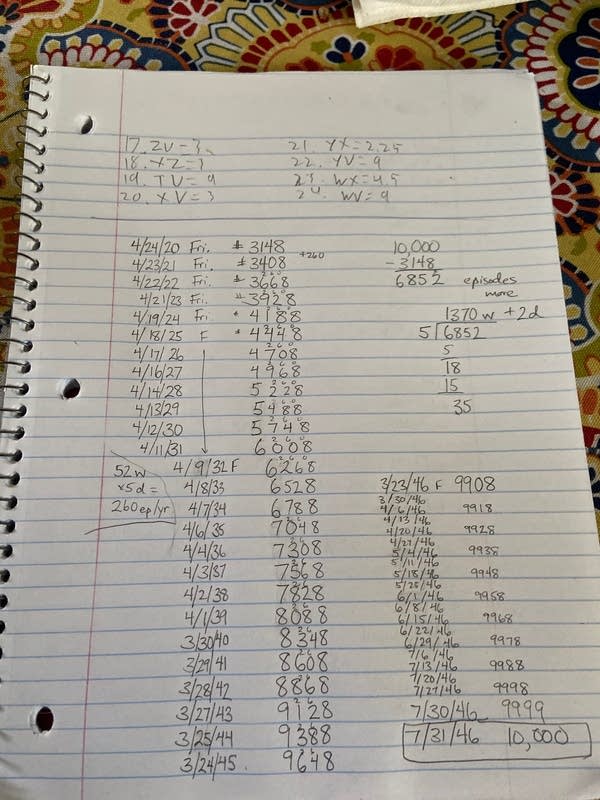 17. ZV = 3 21. YX = 2.25
18. XZ = 1 22. YV = 9
19. TV = 9 23. WX = 4.5
20. XV = 3 24. WV = 9
4/24/20 Fri. # 3148
4/23/21 Fri. # 3408 +260
4/22/22 Fri. # 3668
4/21/23 Fri. # 3928
4/19/24 Fri. # 4188
4/18/25 F # 4448
4/17/26 4708
4/16/27 4968
4/14/28 5228
4/13/29 5488
4/12/30 5748
4/11/31 6008
4/9/32 F 6268
4/8/33 6528
4/7/34 6788
4/6/35 7048
4/4/36 7308
4/3/37 7568
4/2/38 7828
4/1/39 8088
3/30/40 8348
3/29/41 8608
3/28/42 8868
3/27/43 9128
3/25/44 9388
3/24/45. 9648
52w
x5d =
260ep/yr
10,000
- 3148
6852 episodes
more
1370 w + 2d
5 6852
5
18
15
35
3/23/46 F 9908
3/30/46
4/6/46 9918
4/13/46
4/20/46 9928
4/27/46
5/4/46 9938
5/11/46
5/18/46 9948
5/25/46
6/1/46 9958
6/8/46
6/15/46 9968
6/22/46
6/29/46 9978
7/6/46
7/13/46 9988
7/20/46
7/27/46 9998
7/30/46 9999
7/31/46 10,000